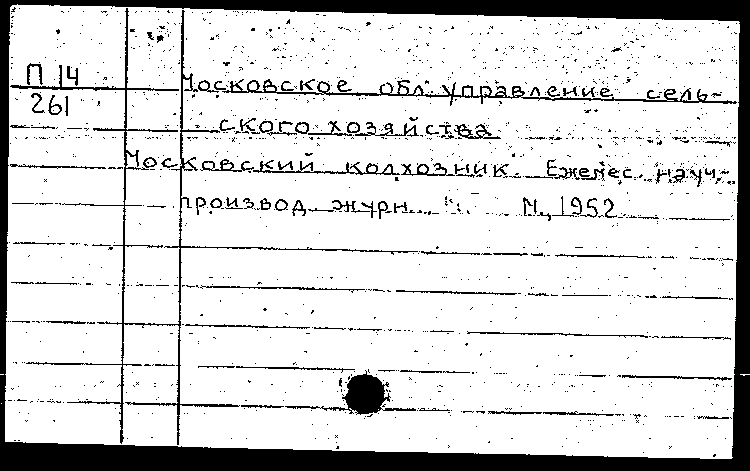 П 14
261
Московское обл. управление сель-
ского хозяйства
Московский колхозник. Ежемес. науч.-
производ. журн. М., 1952